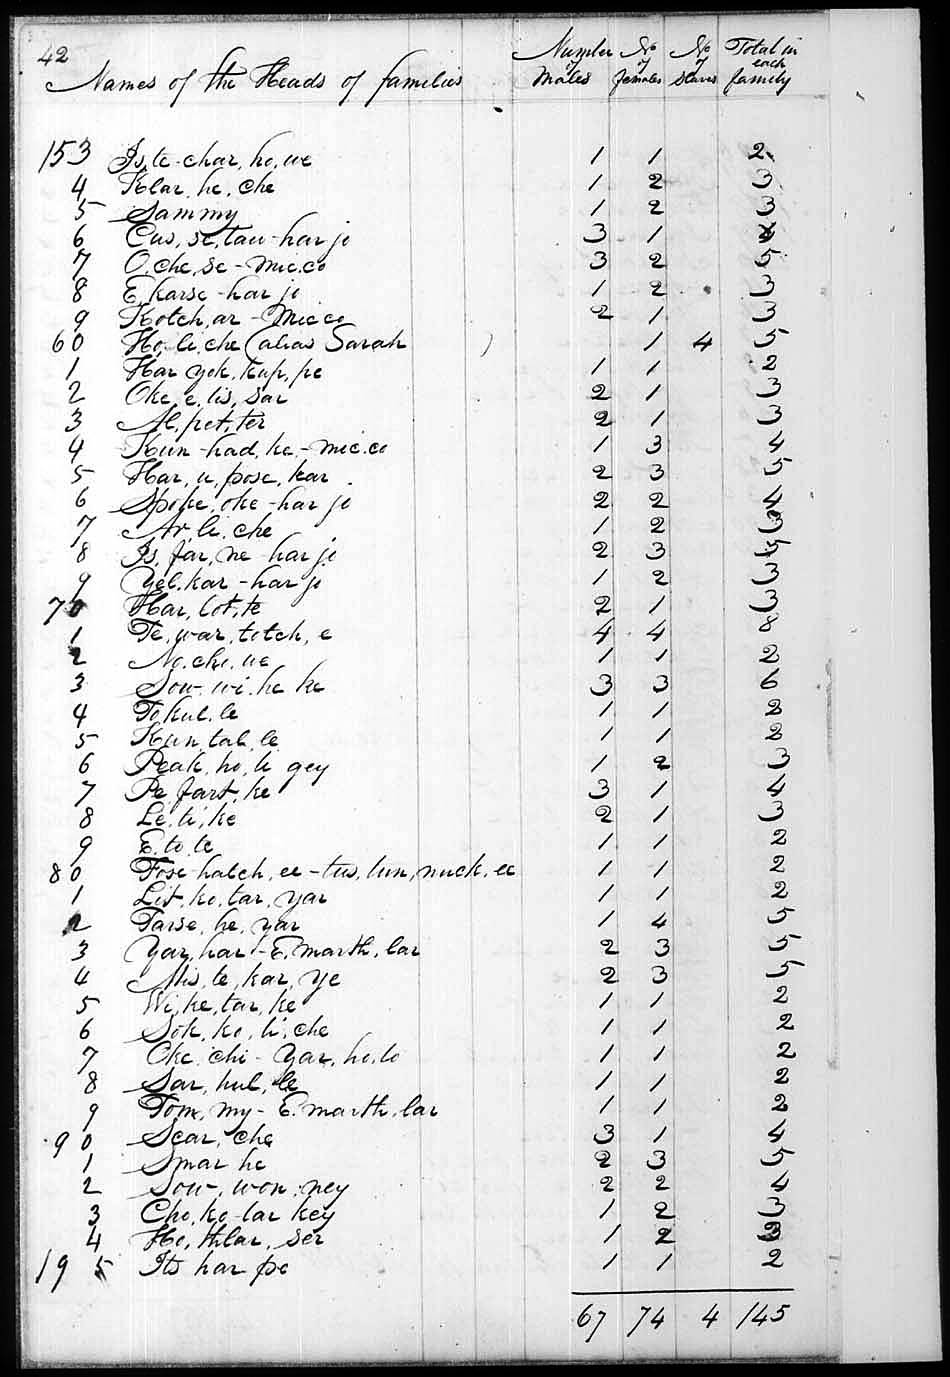 42
Names of the Heads of families Number of Males No of females No of Slaves Total in each family
153 Is, te-char, ho, we 1 1 2
4 Klar, he, che 1 2 3
5 Sammy 1 2 3
6 Cus, se, tau-harjo 3 1 4
7 O, che, se-Micco 3 2 5
8 E, harse-harjo 1 2 3
9 Kotch, ar-Micco 2 1 3
60 Ho, li, che (alias Sarah ) 1 4 5
1 Har yok, kup, pe 1 1 2
2 Oke, e, lis, sar 2 1 3
3 Al, pet, ter 2 1 3
4 Kun-had, ke-mic.co 1 3 4
5 Har, u, pose, kar 2 3 5
6 Spoke, oke-harjo 2 2 4
7 Ar, li, che 1 2 3
8 Is, far, ne-harjo 2 3 5
9 Yel, kar-harjo 1 2 3
70 Har, lot, te 2 1 3
1 Te, war, totch, e 4 4 8
2 No, cho, we 1 1 2
3 Sow, wi, he ke 3 3 6
4 To kul, le 1 1 2
5 Kun, tal, le 1 1 2
6 Peak, ho, li gey 1 2 3
7 Pe fart, ke 3 1 4
8 Le, ti, ke 2 1 3
9 E, to, le 1 1 2
80 Fose-hatch, ee-tus, tun, nuck, ee 1 1 2
1 Lit, ko, tar, yar 1 1 2
2 Tarse, he, yar 1 4 5
3 Yar, har-E, marth, lar 2 3 5
4 Mis, te, kar, ye 2 3 5
5 Wi, ke, tar, ke 1 1 2
6 Sok, ko, li, che 1 1 2
7 Oke, chi-Yar, ho, lo 1 1 2
8 Sar, hul, le 1 1 2
9 Tom, my-E, marth, lar 1 1 2
90 Scar, che 3 1 4
1 Smar he 2 3 5
2 Sow, won, ney 2 2 4
3 Cho, ko-lar key 1 2 3
4 Ho, thlar, ser 1 2 3
195 Its har pe 1 1 2
67 74 4 145